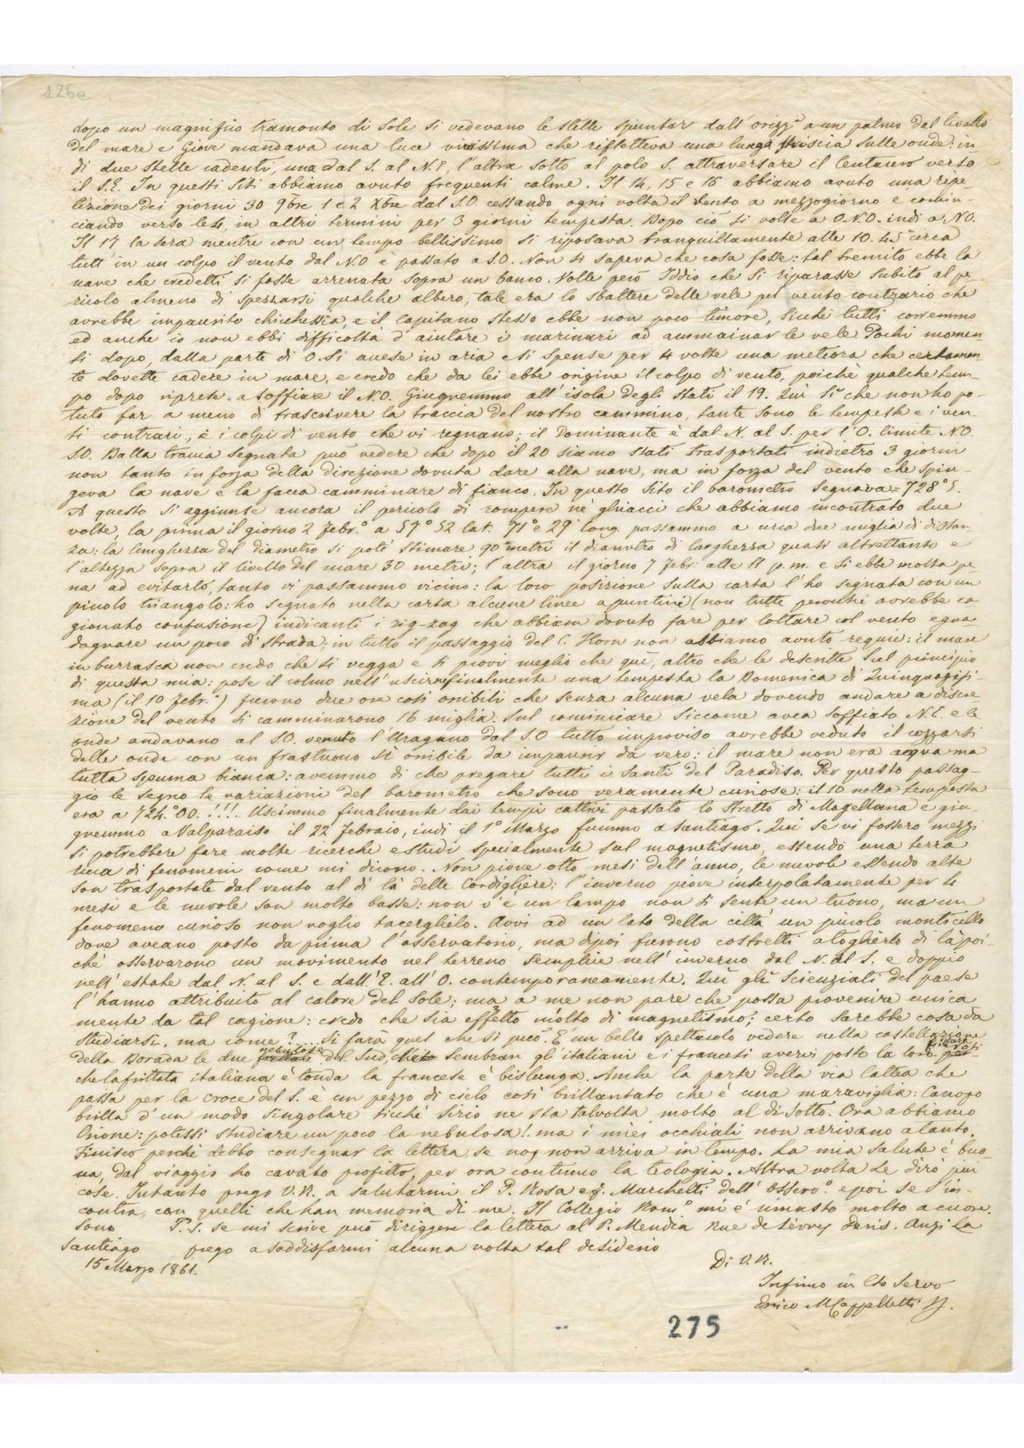 126a
dopo un magnifico tramonto di Sole si vedevano le stelle spuntar dall'orizz.e a un palmo dal livello
del mare e Giove mandava una luce vivissima che rifletteva una lunga striscia sulle onde: in
di due stelle cadenti, una dal S. al N.E, l'altra sotto al polo S. attraversare il Centauro verso
il S.E. In questi siti abbiamo avuto frequenti calme. Il 14, 15 e 16 abbiamo avuto una ripe-
tizione dei giorni 30 9bre 1 e 2 Xbre dal S.O cessando ogni volta il vento a mezzogiorno e comin-
ciando verso le 4, in altri termini per 3 giorni tempesta. Dopo ciò si volse a O.N.O. indi a N.O.
Il 17 la sera mentre con un tempo bellissimo si riposava tranquillamente alle 10.45 circa
tutt'in un colpo il vento dal N.O è passato a S.O. Non si sapeva che cosa fosse: tal tremito ebbe la
nave che credetti si fosse arrenata sopra un banco. Volle però Iddio che si riparasse subito al pe-
ricolo almeno di spezzarsi qualche albero, tale era lo sbattere delle vele pel vento contrario che
avrebbe impaurito chicchessia, e il Capitano stesso ebbe non poco timore, sicché tutti corremmo
ed anche io non ebbi difficoltà d'aiutare i marinari ad ammainar le vele. Pochi momen-
ti dopo, dalla parte di O. si accese in aria e si spense per 4 volte una meteora che certamen-
te dovette cadere in mare, e credo che da lei ebbe origine il colpo di vento, poichè qualche tem-
po dopo riprese a soffiare il N.O. Giugnemmo all'isola degli Stati il 19. Qui si che non ho po-
tuto far a meno di trascrivere la traccia del nostro cammino, tante sono le tempeste e i ven-
ti contrari, e i colpi di vento che vi regnano; il Dominante è dal N. al S. per l'O. limite N.O
S.O. Dalla traccia segnata può vedere che dopo il 20 siamo stati trasportati indietro 3 giorni
non tanto in forza della direzione dovuta dare alla nave, ma in forza del vento che spin-
geva la nave e la facea camminare di fianco. In questo sito il barometro segnava = 728°5.
A questo si aggiunse ancora il pericolo di rompere ne' ghiacci che abbiamo incontrato due
volte, la prima il giorno 2 Febr.o a 57° 52 lat. 71° 29' long. passammo a circa due miglia di distan-
za: la lunghezza del diametro si poté stimare 90 metri il diametro di larghezza quasi altrettanto e
l'altezza sopra il livello del mare 30 metri; l'altra il giorno 7 Febr. alle 11 p.m. e si ebbe molta pe-
na ad evitarlo, tanto vi passammo vicino: la loro posizione sulla carta l'ho segnata con un
piccolo triangolo: ho segnato nella carta alcune linee a puntini (non tutte perché avrebbe ca-
gionato confusione) indicanti i zig-zag che abbiam dovuto fare per lottare col vento e gua-
dagnare un poco di strada; in tutto il passaggio del C. Horn non abbiamo avuto regure: il mare
in burrasca non credo che si vegga e si provi meglio che qui, altro che le descritte sul principio
di questa mia: pose il colmo nell'uscirne finalmente una tempesta la Domenica di Quinquagesi-
ma (il 10 Febr.o) furono due ore così orribili che senza alcuna vela dovendo andare a discre-
zione del vento si camminarono 16 miglia. Sul cominciare siccome avea soffiato N.E. e le
onde andavano al S.O. venuto l'Uragano dal S.O tutto improviso avrebbe veduto il cozzarsi
delle onde con un frastuono sì orribile da impaurir da vero: il mare non era acqua ma
tutta spuma bianca: avemmo di che pregare tutti i Santi del Paradiso. Per questo passag-
gio le segno le variazioni del barometro che sono veramente curiose: il 10 nella tempesta
era a 724.°00.!!!! Uscimmo finalmente dai tempi cattivi passato lo Stretto di Magellano e giu-
gnemmo a Valparaiso il 22 Febraio, indi il 1° Marzo fummo a Santiago. Qui se vi fossero mezzi
si potrebbere fare molte ricerche e studi specialmente sul magnetismo, essendo una terra
ricca di fenomeni come mi dicono.. Non piove otto mesi dell'anno, le nuvole essendo alte
son trasportate dal vento al di là delle Cordigliere; l'inverno piove interpolatamente per 4
mesi e le nuvole son molto basse; non v'è un lampo non si sente un tuono, ma un
fenomeno curioso non voglio tacerglielo. Avvi ad un lato della città un piccolo monticello
dove aveano posto da prima l'osservatorio, ma dipoi furono costretti a toglierlo di là poi-
chè osservarono un movimento nel terreno semplice nell'inverno dal N. al S. e doppio
nell'estate dal N. al S. e dall'E. all'O. contemporaneamente. Qui gli scienziati del paese
l'hanno attribuito al calore del Sole; ma a me non pare che possa provenire unica-
mente da tal cagione: credo che sia effetto molto di magnetismo; certo sarebbe cosa da
studiarsi, ma come?.... Si farà quel che si può. È un bello spettacolo vedere nella costellazione
della Dorada le due nebulose del Sud, che sembran gl'italiani e i francesi avervi posto la loro
che la frittata italiana è tonda la francese è bislunga. Anche la parte della via lattea che
passa per la Croce del S. è un pezzo di cielo così brillantato che è una maraviglia: Canopo
brilla d'un modo singolare sicché Sirio ne sta talvolta molto al di sotto. Ora abbiamo
Orione: potessi studiare un poco la nebulosa! ma i miei occhiali non arrivano a tanto.
Finisco perché debbo consegnar la lettera se no non arriva in tempo. La mia salute è buo-
na, dal viaggio ho cavato profitto, per ora continuo la teologia. Altra volta Le dirò più
cose. Intanto prego V.R. a salutarmi il P. Rosa e Marchetti dell'Osserv.o e poi se s'in-
contra, con quelli che han memoria di me. Il Collegio Rom.o mi è rimasto molto a cuore.
Sono P.S. se mi scrive può diriggere la lettera al P. Mendia Rue de Sèvry Paris. Anzi La
Santiago prego a soddisfarmi alcuna volta tal desiderio
15 Marzo 1861.
Di V.R.
Infimo in Cto Servo
Enrico M Cappelletti SJ.
275